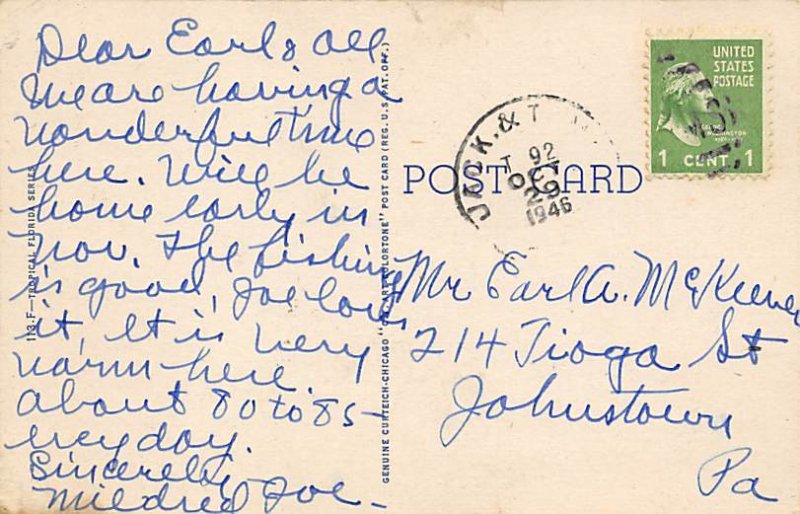 Dear Earl & all
We are having a
wonderful time
here. Will be
home early in
Nov. The fishing
is good, Joe loves
it, It is very
warm here.
about 80 to 85-
every day.
Sincerely,
Mildred Joe-
113-F—TROPICAL FLORIDA SERIES
GENUINE CURTEICH-CHICAGO "C.T. ART-COLORTONE" POST CARD (REG. U.S. PAT. OFF.)
POST CARD
JACK. & T
T 92
OCT
29
1946
UNITED
STATES
POSTAGE
WASHINGTON
1 CENT 1
Mr Earl A. McKeever
214 Tioga St
Johnstown
Pa